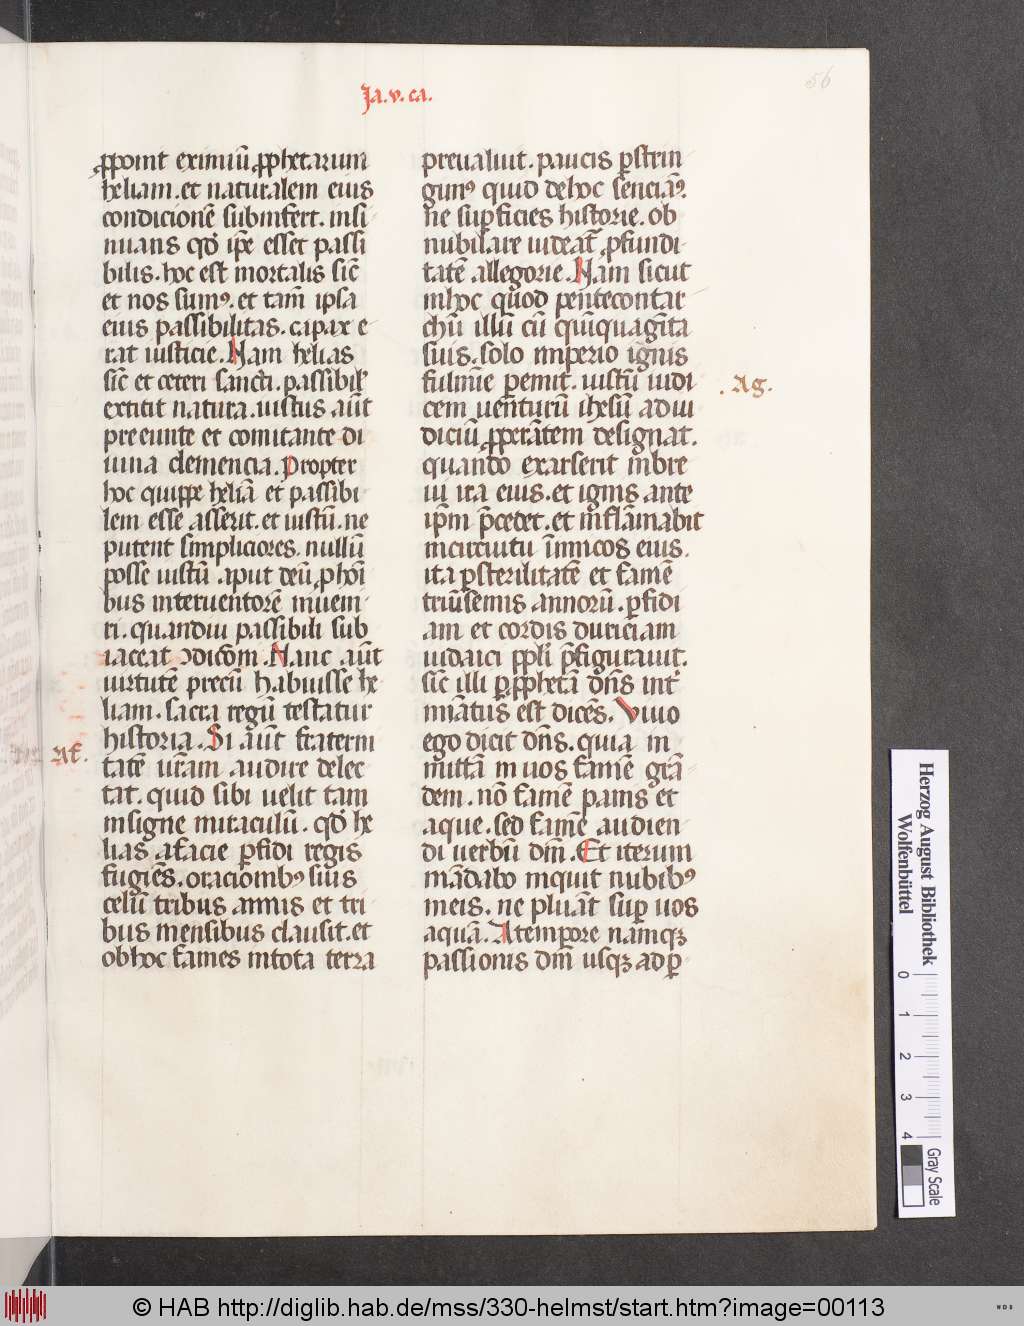 56
Ja. v. ca.
ꝓpoint eximiū ꝓphetarum
heliam. et naturalem eius
condicionē subinfert. insi
nuans qđ ip̄e esset passi
bilis. hoc est mortalis sic̄
et nos sumꝰ. et tam̄ ipsa
eius passibilitas. capax e
rat iusticie. Nam helias
sic̄ et ceteri sancti. passibil'
extitit natura. iustus aūt
preeunte et comitante di
uina clemencia. Propter
hoc quippe heliā et passibi
lem esse asserit. et iustū. ne
putent simpliciores. nullū
posse iustū aput deū ꝓ hoī
bus interuentorē inueni
ri. quandiu passibili sub
iaceat ↄdicōm. Hanc aūt
uirtutē precū habuisse he
liam. sacra regū testatur
historia. Si aūt fraterni
tatē ur̄am audire delec
tat. quid sibi uelit tam
insigne miraculū. qđ he
lias a facie ꝑfidi regis
fugiēs. oracionibꝰ suis
celū tribus annis et tri
bus mensibus clausit. et
ob hoc fames in tota terra
Af.
preualuit. paucis ꝑstrin
gimꝰ quid de hoc senciāꝰ.
ne suꝑficies historie. ob
nubilare uideat̄ ꝓfundi
tatē allegorie. Nam sicut
in hoc quod pentecontar
chū illū cū qūiquagīta
suis. solo imperio ignis
fulmīe ꝑemit. iustū iudi
cem uenturū ihesū ad iu
diciū ꝓperātem designat.
quando exarserit in bre
ui ira eius. et ignis ante
ip̄m p̄cedet. et inflāmabit
in circuitu īimicos eius.
ita ꝑ sterilitatē et famē
triū semis annorū. ꝑfidi
am et cordis duriciam
iudaici ppl̄i p̄figurauit.
sic̄ illi ꝑ ꝓphetā dn̄s int'
minatus est dicēs. Viuo
ego dicit dn̄s. quia in
mittā in uos famē grā
dem. nō famē panis et
aque. sed famē audien
di uerbū dn̄i. Et iterum
mādabo inquit nubibꝰ
meis. ne pluāt suꝑ uos
aquā. A tempore namqꝫ
passionis dn̄i usqꝫ ad ꝑ
. Ag.
Herzog August Bibliothek
Wolfenbüttel
0 1 2 3 4
Gray Scale
© HAB http://diglib.hab.de/mss/330-helmst/start.htm?image=00113